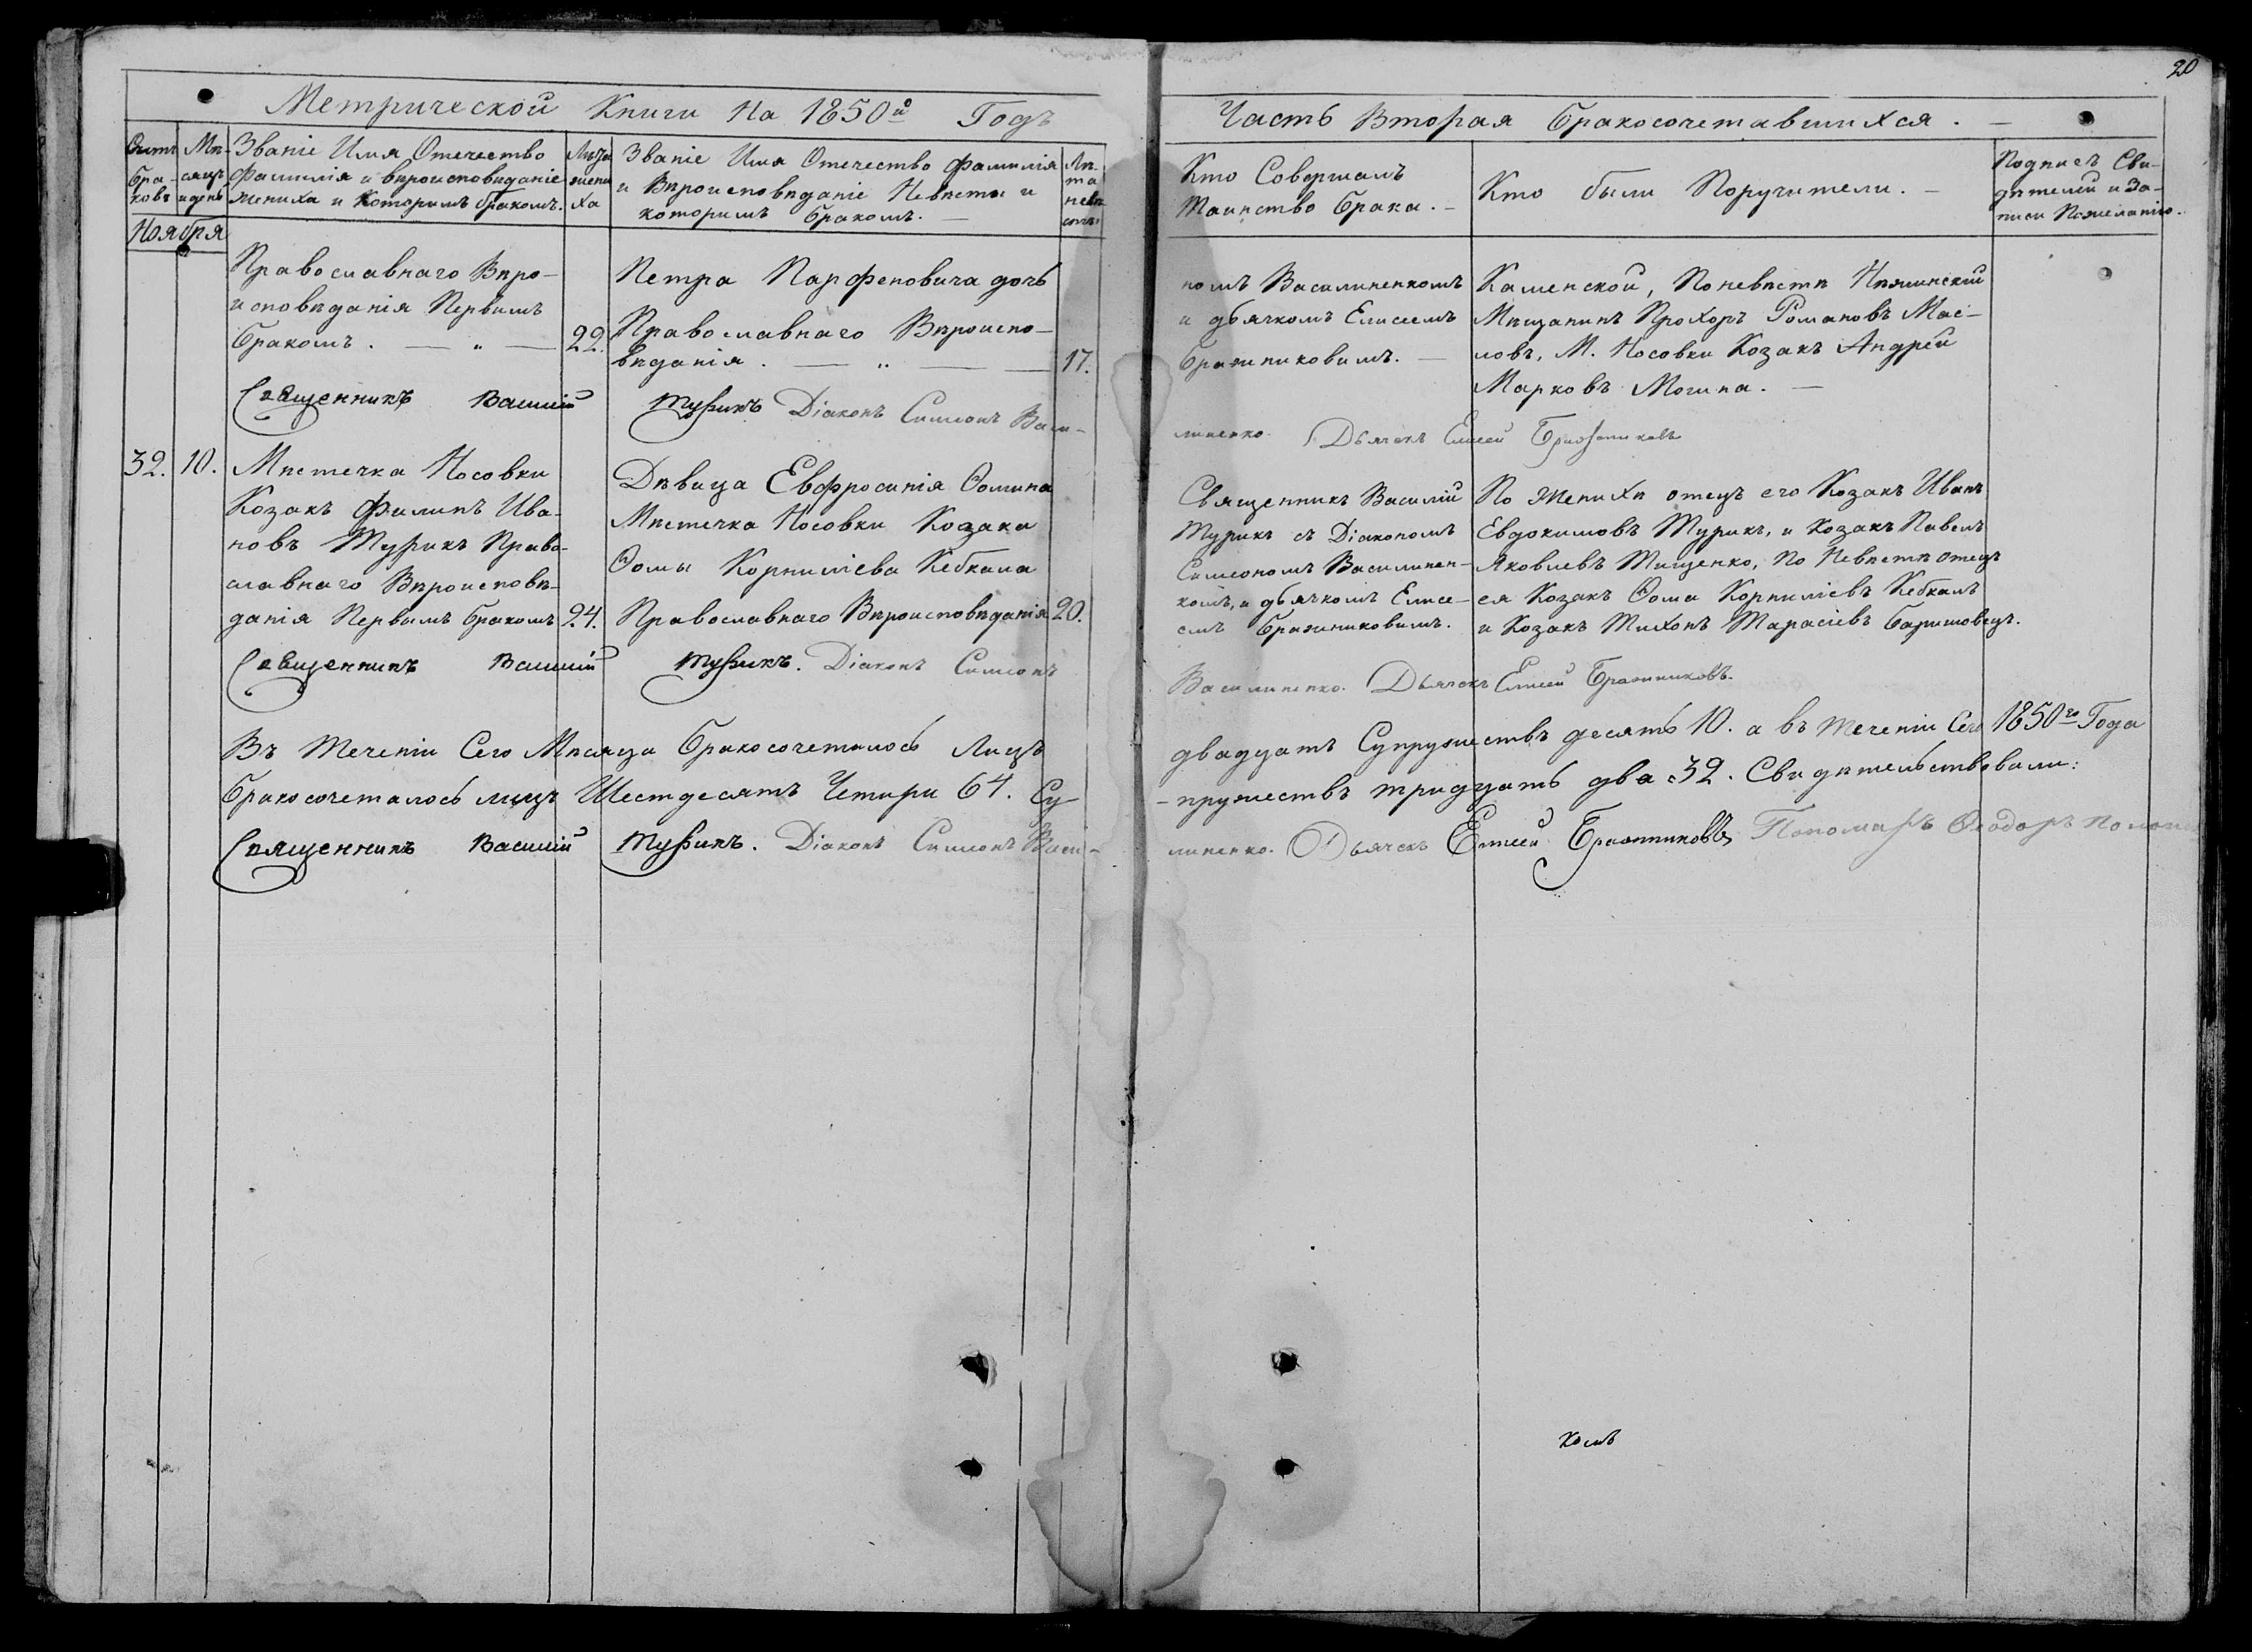 20
Метрической Книги На 1850й Годъ
Счетъ браковъ
Мѣсяцъ и день
Званіе Имя Отечество
Фамилія и вѣроисповѣданіе
жениха и Которимъ бракомъ.
Лѣта жениха
Званіе Имя Отечество Фамилія
и Вѣроисповѣданіе Невѣсты и
которимъ бракомъ. —
Лѣта невѣсты
Часть Вторая Бракосочетавшихся. —
Кто Совершалъ
Таинство Брака. —
Кто были Поручители. —
Подписъ Сви-
дѣтелей и За-
писи Пожеланію.
Ноября
Православнаго Вѣро-
исповѣданія Первимъ
бракомъ. — „ — 22.
Петра Парфеновича дочь
Православнаго Вѣроиспо-
вѣданія. — „ — 17.
номъ Василиненкомъ
и дьячкомъ Елисеемъ
Бражниковимъ. —
Каменской, Поневѣстѣ Нѣжинскій
Мѣщанинъ Прохоръ Романовъ Мас-
ловъ, М. Носовки Козакъ Андрей
Марковъ Могина. —
Священникъ Василій Турикъ Діаконъ Симеонъ Васи-
линенко. Дьячекъ Елисей Бражниковъ
32. 10. Мѣстечка Носовки
Козакъ Филипъ Ива-
новъ Турикъ Право-
славнаго Вѣроисповѣ-
данія Первимъ бракомъ 24.
Дѣвица Евфросинія Ѳомина
Мѣстечка Носовки Козака
Ѳомы Корниліева Кебкала
Православнаго Вѣроисповѣданія 20.
Священникъ Василій
Турикъ съ Діакономъ
Симеономъ Василинен-
комъ, и дьячкомъ Елисе-
емъ Бражниковимъ.
По Женихѣ отецъ его Козакъ Иванъ
Евдокимовъ Турикъ, и Козакъ Павелъ
Яковлевъ Тищенко, По Невѣстѣ отецъ
ея Козакъ Ѳома Корниліевъ Кебкалъ
и Козакъ Тихонъ Тарасіевъ Баришовецъ.
Священникъ Василій Турикъ. Діаконъ Симеонъ
Василиненко. Дьячекъ Елисей Бражниковъ.
Въ Теченіи Сего Мѣсяца бракосочеталось Лицъ
двадцатъ Супружествъ десять 10. а въ Теченіи Сего 1850го Года
бракосочеталось лицъ Шестдесятъ Четири 64. Су-
-пружествъ тридцать два 32. Свидѣтельствовали:
Священникъ Василій Турикъ. Діаконъ Симеонъ Васи-
линенко. Дьячекъ Елисей Бражниковъ Пономарь Ѳеодоръ
комъ